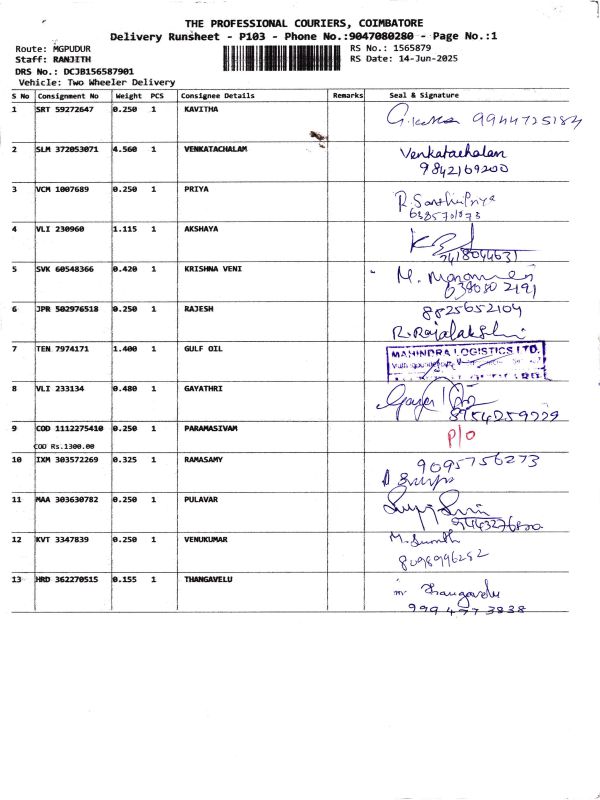 THE PROFESSIONAL COURIERS, COIMBATORE
Delivery Runsheet - P103 - Phone No.:9047080280 - Page No.:1
Route: MGPUDUR RS No.: 1565879
Staff: RANJITH RS Date: 14-Jun-2025
DRS No.: DCJB156587901
Vehicle: Two Wheeler Delivery
S No Consignment No Weight PCS Consignee Details Remarks Seal & Signature
1 SRT 59272647 0.250 1 KAVITHA
9944725184
2 SLM 372053071 4.560 1 VENKATACHALAM Venkatachalam
9842169200
3 VCM 1007689 0.250 1 PRIYA R. Santhiya
4 VLI 230960 1.115 1 AKSHAYA
7418044631
5 SVK 60548366 0.420 1 KRISHNA VENI M.
6380502191
6 JPR 502976518 0.250 1 RAJESH 8825652104
R. Rajalakshmi
7 TEN 7974171 1.400 1 GULF OIL MAHINDRA LOGISTICS LTD.
8 VLI 233134 0.480 1 GAYATHRI
8954259229
9 COD 1112275410 0.250 1 PARAMASIVAM P/O
COD Rs.1300.00
10 IXM 303572269 0.325 1 RAMASAMY 9095756273
11 MAA 303630782 0.250 1 PULAVAR
12 KVT 3347839 0.250 1 VENUKUMAR M.
8098996252
13 HRD 362270515 0.155 1 THANGAVELU m Thangavelu
999 4773838